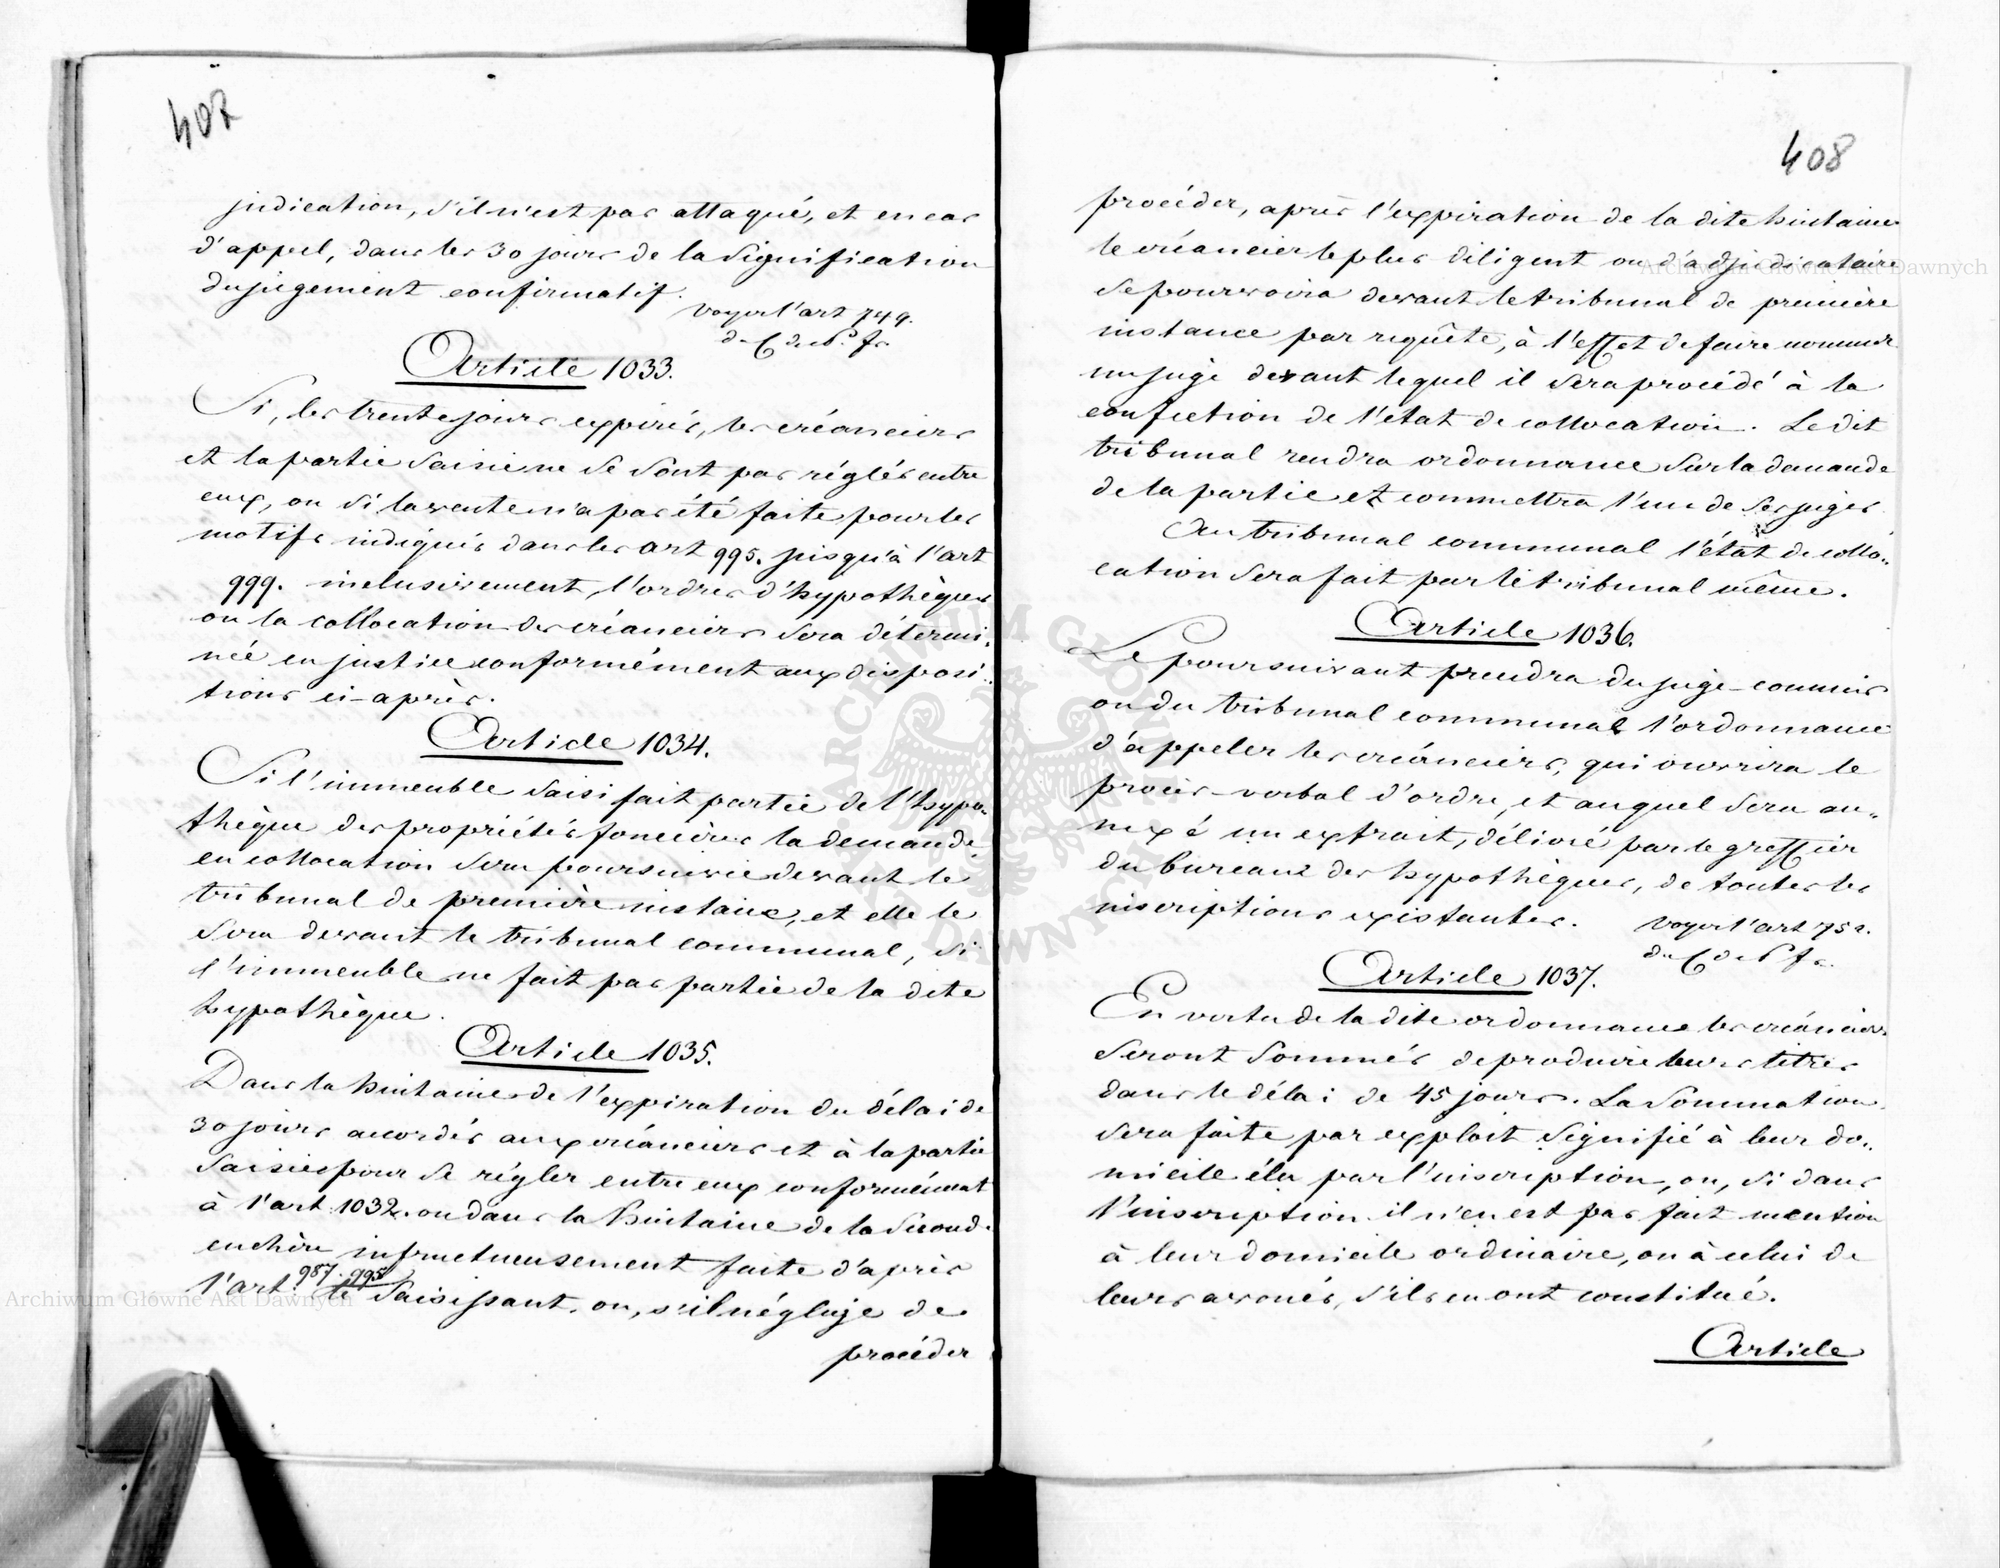 407
judication, s'il n'est pas attaqué, et en cas
d'appel, dans les 30 jours de la signification
du jugement confirmatif.
voyez l'art 749.
du C de Pr. fr.
Article 1033.
Si, les trente jours expirés, les créanciers
et la partie saisie ne se sont pas réglés entre
eux, ou si la vente n'a pas été faite pour les
motifs indiqués dans les art 995. jusqu'à l'art
999. inclusivement, l'ordre d'hypothèques
ou la collocation des créanciers sera détermi-
née en justice conformément aux disposi-
tions ci-après.
Article 1034.
Si l'immeuble saisi fait partie de l'hypo-
thèque des propriétés foncières la demande
en collocation sera poursuivie devant le
tribunal de première instance, et elle le
sera devant le tribunal communal, si
l'immeuble ne fait pas partie de la dite
hypothèque.
Article 1035.
Dans la huitaine de l'expiration du délai de
30 jours accordés aux créanciers et à la partie
saisie pour se régler entre eux conformément
à l'art 1032. ou dans la huitaine de la seconde
enchère infructueusement faite d'après
l'art. 987. 995 le saisissant, ou, s'il néglige de
procéder
408
procéder, après l'expiration de la dite huitaine
le créancier le plus diligent ou l'adjudicataire
se pourvoira devant le tribunal de première
instance par requête, à l'effet de faire nommer
un juge devant lequel il sera procédé à la
confection de l'état de collocation. Le dit
tribunal rendra ordonnance sur la demande
de la partie et commettra l'un de ses juges.
Au tribunal communal l'état de collo-
cation sera fait par le tribunal même.
Article 1036.
Le poursuivant prendra du juge-commis
ou du tribunal communal l'ordonnance
d'appeler les créanciers, qui ouvrira le
procès-verbal d'ordre, et auquel sera an-
nexé un extrait, délivré par le greffier
du bureau des hypothèques, de toutes les
inscriptions existantes.
voyez l'art 752.
du C de Pr fr.
Article 1037.
En vertu de la dite ordonnance les créanciers
seront sommés de produire leurs titres
dans le délai de 45 jours. La sommation
sera faite par exploit signifié à leur do-
micile élu par l'inscription, ou, si dans
l'inscription il n'en est pas fait mention
à leur domicile ordinaire, ou à celui de
leurs avoués, s'ils en ont constitué.
Article
Archiwum Główne Akt Dawnych
Archiwum Główne Akt Dawnych
ARCHIWUM GŁÓWNE AKT DAWNYCH